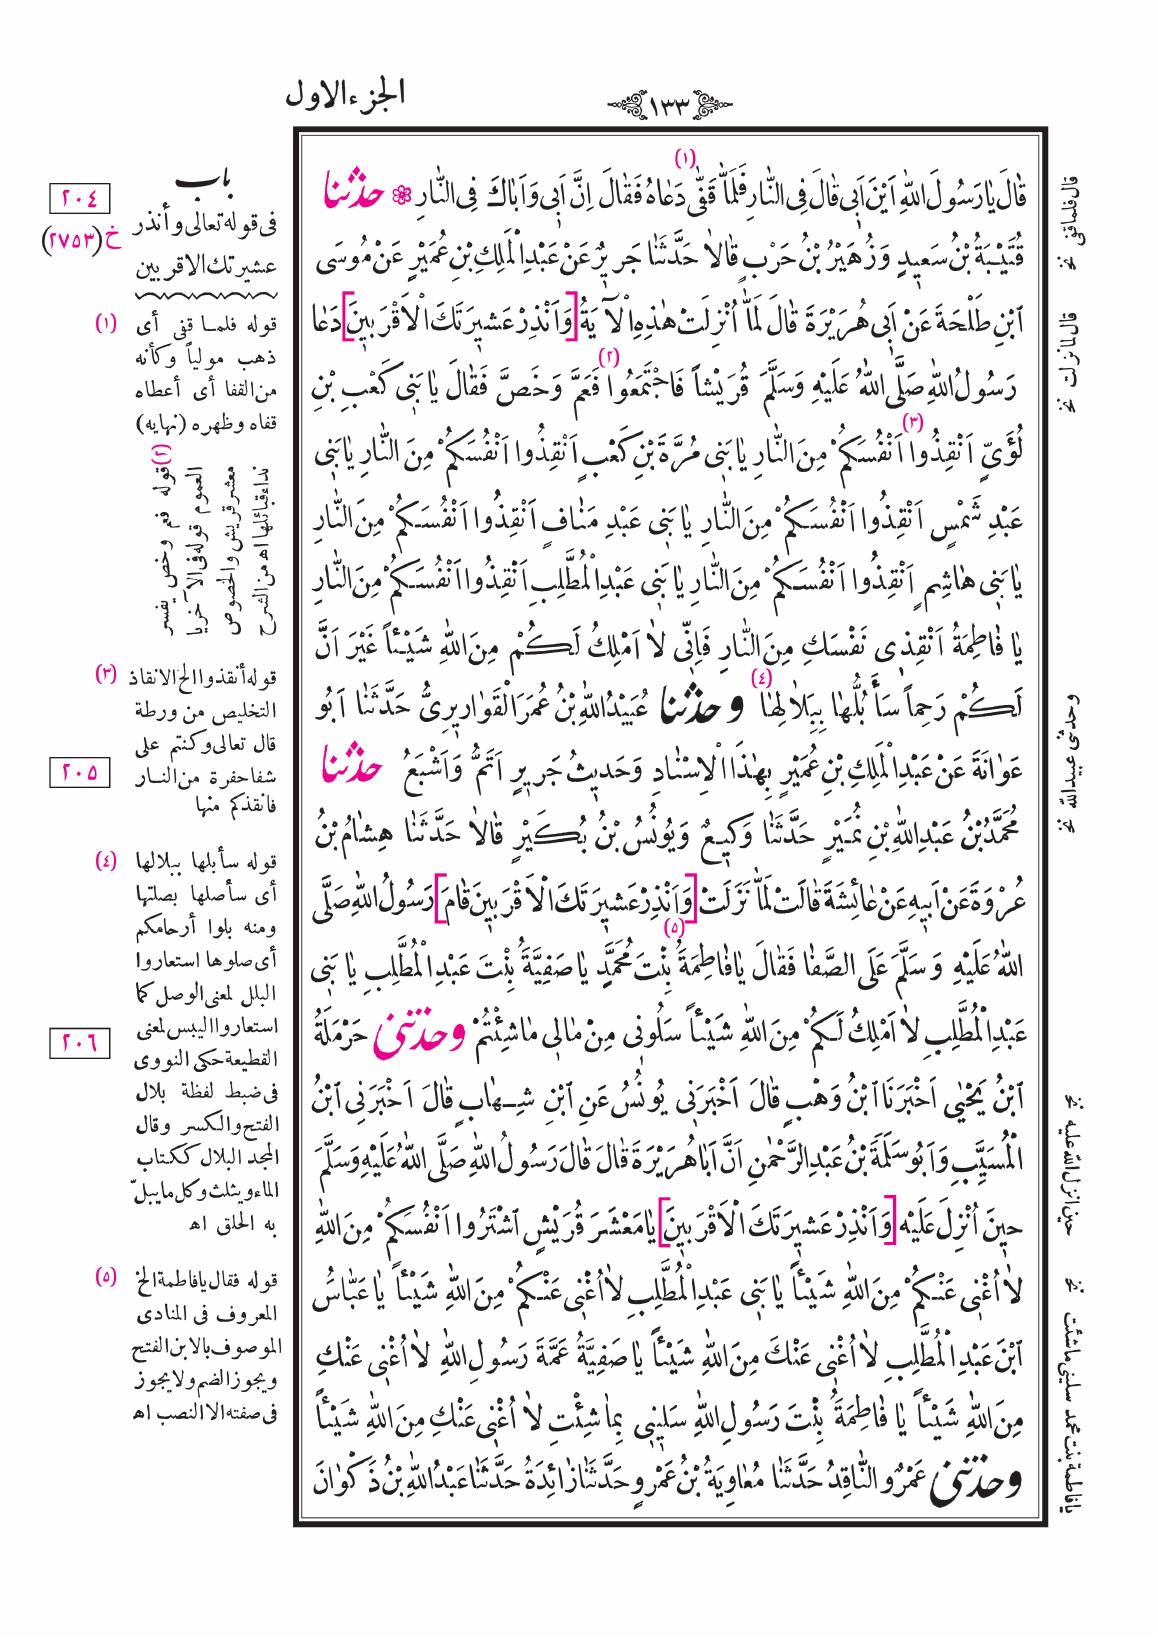 الجزء الاول
١٣٣
قَالَ يَا رَسُولَ اللّٰهِ اَيْنَ اَبِى قَالَ فِى النَّارِ فَلَمَّا قَفّٰى (١) دَعَاهُ فَقَالَ اِنَّ اَبِى وَاَبَاكَ فِى النَّارِ ❁ حَدَّثَنَا
قُتَيْبَةُ بْنُ سَعِيدٍ وَزُهَيْرُ بْنُ حَرْبٍ قَالَا حَدَّثَنَا جَرِيرٌ عَنْ عَبْدِ الْمَلِكِ بْنِ عُمَيْرٍ عَنْ مُوسَى
ابْنِ طَلْحَةَ عَنْ اَبِى هُرَيْرَةَ قَالَ لَمَّا اُنْزِلَتْ هٰذِهِ الْآيَةُ [وَاَنْذِرْ عَشِيرَتَكَ الْاَقْرَبِينَ] دَعَا
رَسُولُ اللّٰهِ صَلَّى اللّٰهُ عَلَيْهِ وَسَلَّمَ قُرَيْشاً فَاجْتَمَعُوا (٢) فَعَمَّ وَخَصَّ فَقَالَ يَا بَنِى كَعْبِ بْنِ
لُؤَىٍّ اَنْقِذُوا (٣) اَنْفُسَكُمْ مِنَ النَّارِ يَا بَنِى مُرَّةَ بْنِ كَعْبٍ اَنْقِذُوا اَنْفُسَكُمْ مِنَ النَّارِ يَا بَنِى
عَبْدِ شَمْسٍ اَنْقِذُوا اَنْفُسَكُمْ مِنَ النَّارِ يَا بَنِى عَبْدِ مَنَافٍ اَنْقِذُوا اَنْفُسَكُمْ مِنَ النَّارِ
يَا بَنِى هَاشِمٍ اَنْقِذُوا اَنْفُسَكُمْ مِنَ النَّارِ يَا بَنِى عَبْدِ الْمُطَّلِبِ اَنْقِذُوا اَنْفُسَكُمْ مِنَ النَّارِ
يَا فَاطِمَةُ اَنْقِذِى نَفْسَكِ مِنَ النَّارِ فَاِنِّى لَا اَمْلِكُ لَكُمْ مِنَ اللّٰهِ شَيْئاً غَيْرَ اَنَّ
لَكُمْ رَحِماً سَأَبُلُّهَا بِبَلَالِهَا (٤) وحَدَّثَنَا عُبَيْدُ اللّٰهِ بْنُ عُمَرَ الْقَوَارِيرِىُّ حَدَّثَنَا اَبُو
عَوَانَةَ عَنْ عَبْدِ الْمَلِكِ بْنِ عُمَيْرٍ بِهٰذَا الْاِسْنَادِ وَحَدِيثُ جَرِيرٍ اَتَمُّ وَاَشْبَعُ حَدَّثَنَا
مُحَمَّدُ بْنُ عَبْدِ اللّٰهِ بْنِ نُمَيْرٍ حَدَّثَنَا وَكِيعٌ وَيُونُسُ بْنُ بُكَيْرٍ قَالَا حَدَّثَنَا هِشَامُ بْنُ
عُرْوَةَ عَنْ اَبِيهِ عَنْ عَائِشَةَ قَالَتْ لَمَّا نَزَلَتْ [وَاَنْذِرْ عَشِيرَتَكَ الْاَقْرَبِينَ قَامَ] رَسُولُ اللّٰهِ صَلَّى
اللّٰهُ عَلَيْهِ وَسَلَّمَ عَلَى الصَّفَا فَقَالَ يَا فَاطِمَةُ (٥) بِنْتَ مُحَمَّدٍ يَا صَفِيَّةُ بِنْتَ عَبْدِ الْمُطَّلِبِ يَا بَنِى
عَبْدِ الْمُطَّلِبِ لَا اَمْلِكُ لَكُمْ مِنَ اللّٰهِ شَيْئاً سَلُونِى مِنْ مَالِى مَاشِئْتُمْ وحَدَّثَنِى حَرْمَلَةُ
ابْنُ يَحْيٰى اَخْبَرَنَا ابْنُ وَهْبٍ قَالَ اَخْبَرَنِى يُونُسُ عَنِ ابْنِ شِهَابٍ قَالَ اَخْبَرَنِى ابْنُ
الْمُسَيَّبِ وَاَبُو سَلَمَةَ بْنُ عَبْدِ الرَّحْمٰنِ اَنَّ اَبَا هُرَيْرَةَ قَالَ قَالَ رَسُولُ اللّٰهِ صَلَّى اللّٰهُ عَلَيْهِ وَسَلَّمَ
حِينَ اُنْزِلَ عَلَيْهِ [وَاَنْذِرْ عَشِيرَتَكَ الْاَقْرَبِينَ] يَا مَعْشَرَ قُرَيْشٍ اشْتَرُوا اَنْفُسَكُمْ مِنَ اللّٰهِ
لَا اُغْنِى عَنْكُمْ مِنَ اللّٰهِ شَيْئاً يَا بَنِى عَبْدِ الْمُطَّلِبِ لَا اُغْنِى عَنْكُمْ مِنَ اللّٰهِ شَيْئاً يَا عَبَّاسُ
ابْنَ عَبْدِ الْمُطَّلِبِ لَا اُغْنِى عَنْكَ مِنَ اللّٰهِ شَيْئاً يَا صَفِيَّةُ عَمَّةَ رَسُولِ اللّٰهِ لَا اُغْنِى عَنْكِ
مِنَ اللّٰهِ شَيْئاً يَا فَاطِمَةُ بِنْتَ رَسُولِ اللّٰهِ سَلِينِى بِمَا شِئْتِ لَا اُغْنِى عَنْكِ مِنَ اللّٰهِ شَيْئاً
وحَدَّثَنِى عَمْرٌو النَّاقِدُ حَدَّثَنَا مُعَاوِيَةُ بْنُ عَمْرٍو حَدَّثَنَا زَائِدَةُ حَدَّثَنَا عَبْدُ اللّٰهِ بْنُ ذَكْوَانَ
قال فلما قفى نخ
قال لما نزلت نخ
وحدثنى عبيد الله نخ
حين انزل الله عليه نخ
يا فاطمة بنت محمد سلينى ما شئت نخ
٢٠٤
خ (٢٧٥٣)
باب
فى قوله تعالى وأنذر
عشيرتك الاقربين
(١) قوله فلما قفى أى
ذهب مولياً وكأنه
من القفا أى أعطاه
قفاه وظهره (نهايه)
(٢) قوله فعم وخص يفسر
العموم قوله فى الآخر يا
معشر قريش والخصوص
نداء قبائلها اه من الشرح
(٣) قوله أنقذوا الخ الانقاذ
التخليص من ورطة
قال تعالى وكنتم على
شفا حفرة من النار
فانقذكم منها
٢٠٥
(٤) قوله سأبلها ببلالها
أى سأصلها بصلتها
ومنه بلوا أرحامكم
أى صلوها استعاروا
البلل لمعنى الوصل كما
استعاروا اليبس لمعنى
القطيعة حكى النووى
فى ضبط لفظة بلال
الفتح والكسر وقال
المجد البلال ككتاب
الماء ويثلث وكل ما يبلّ
به الحلق اه
٢٠٦
(٥) قوله فقال يا فاطمة الخ
المعروف فى المنادى
الموصوف بالابن الفتح
ويجوز الضم ولا يجوز
فى صفته الا النصب اه